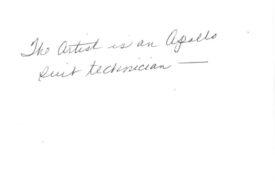 The Artist is an Apollo
Suit technician —